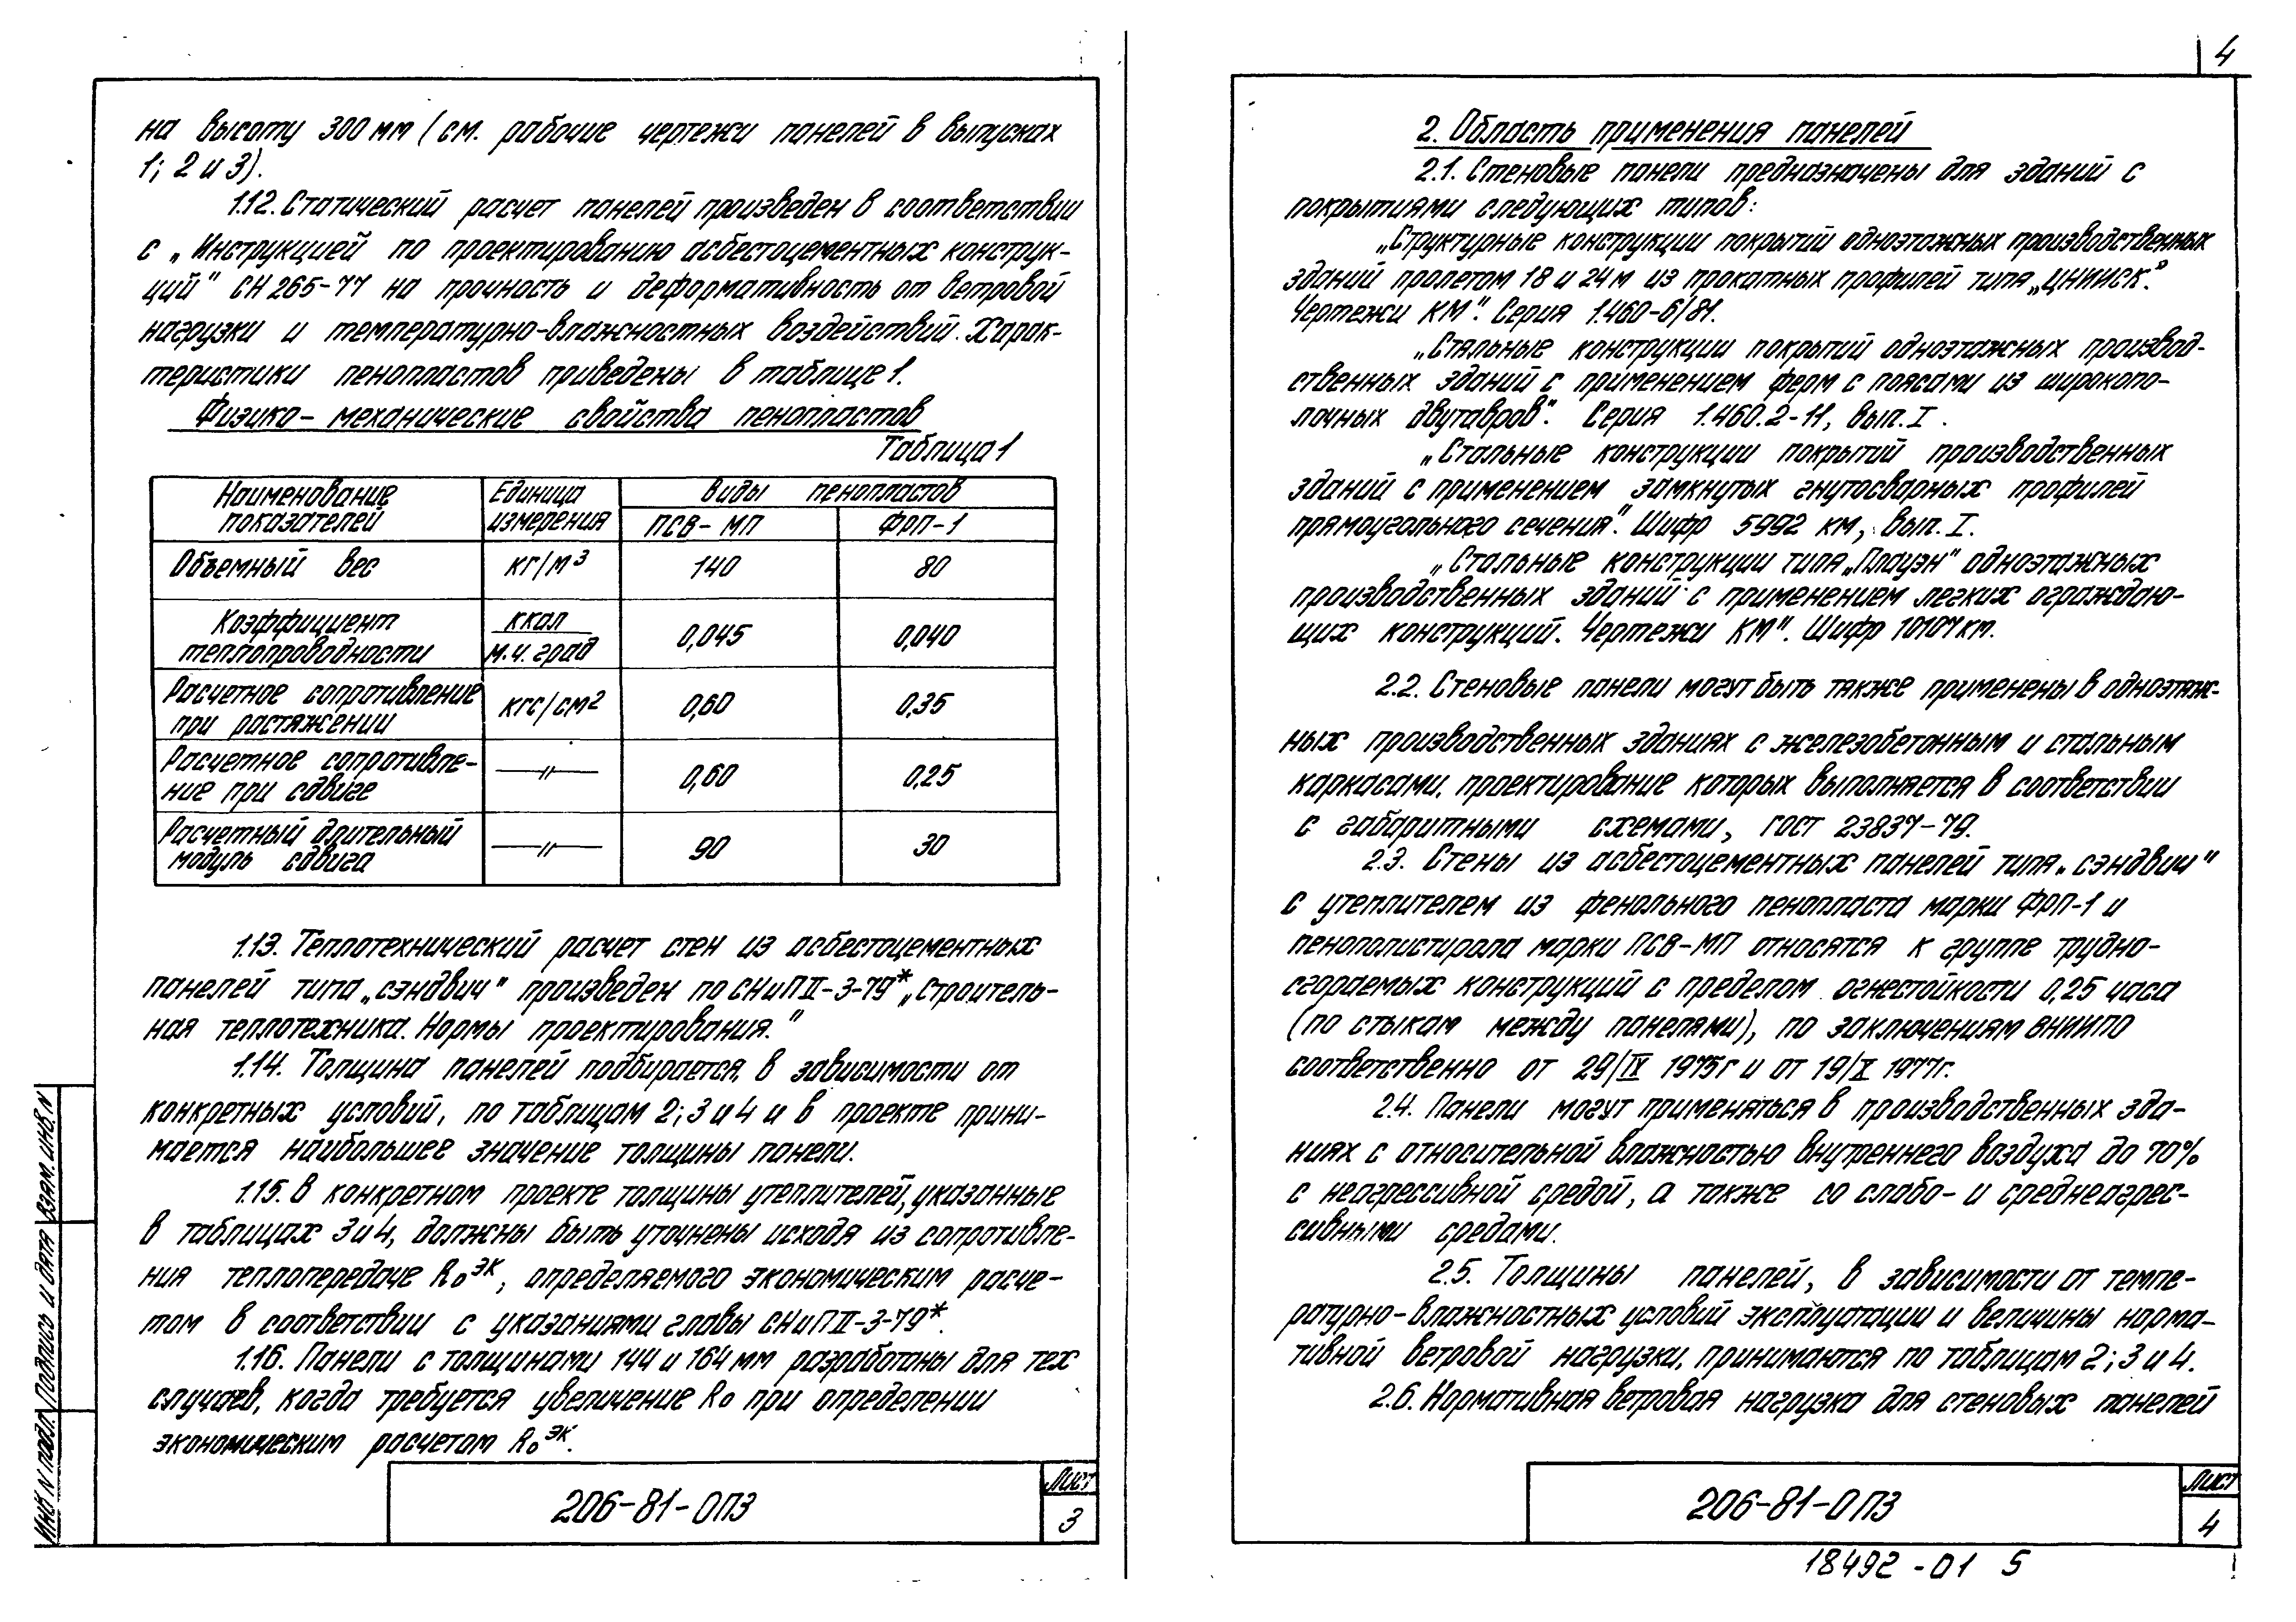 на высоту 300 мм (см. рабочие чертежи панелей в выпусках
1; 2 и 3).
1.12. Статический расчет панелей произведен в соответствии
с „Инструкцией по проектированию асбестоцементных конструк-
ций" СН 265-77 на прочность и деформативность от ветровой
нагрузки и температурно-влажностных воздействий. Харак-
теристики пенопластов приведены в таблице 1.
Физико-механические свойства пенопластов
Таблица 1
Наименование показателей | Единица измерения | Виды пенопластов
ПСВ-МП | ФРП-1
Объемный вес | кг/м³ | 140 | 80
Коэффициент теплопроводности | ккал м.ч.град | 0,045 | 0,040
Расчетное сопротивление при растяжении | кгс/см² | 0,60 | 0,35
Расчетное сопротивле-ние при сдвиге | —〃— | 0,60 | 0,25
Расчетный длительный модуль сдвига | —〃— | 90 | 30
1.13. Теплотехнический расчет стен из асбестоцементных
панелей типа „сэндвич" произведен по СНиП II-3-79* „Строитель-
ная теплотехника. Нормы проектирования."
1.14. Толщина панелей подбирается, в зависимости от
конкретных условий, по таблицам 2; 3 и 4 и в проекте прини-
мается наибольшее значение толщины панели.
1.15. В конкретном проекте толщины утеплителей, указанные
в таблицах 3 и 4, должны быть уточнены исходя из сопротивле-
ния теплопередаче R₀ᵉᵏ, определяемого экономическим расче-
том в соответствии с указаниями главы СНиП II-3-79*.
1.16. Панели с толщинами 144 и 164 мм разработаны для тех
случаев, когда требуется увеличение R₀ при определении
экономическим расчетом R₀ эк.
206-81-0ПЗ
Лист
3
Инв N подл.
Подпись и дата
Взам. инв. N
4
2. Область применения панелей
2.1. Стеновые панели предназначены для зданий с
покрытиями следующих типов:
„Структурные конструкции покрытий одноэтажных производственных
зданий пролетом 18 и 24 м из прокатных профилей типа „ЦНИИСК".
Чертежи КМ". Серия 1.460-6/81.
„Стальные конструкции покрытий одноэтажных производ-
ственных зданий с применением ферм с поясами из широкопо-
лочных двутавров". Серия 1.460.2-11, вып. I.
„Стальные конструкции покрытий производственных
зданий с применением замкнутых гнутосварных профилей
прямоугольного сечения". Шифр 5992 КМ, вып. I.
„Стальные конструкции типа „Плауэн" одноэтажных
производственных зданий с применением легких ограждаю-
щих конструкций. Чертежи КМ". Шифр 10107 км.
2.2. Стеновые панели могут быть также применены в одноэтаж-
ных производственных зданиях с железобетонным и стальным
каркасами, проектирование которых выполняется в соответствии
с габаритными схемами, ГОСТ 23837-79.
2.3. Стены из асбестоцементных панелей типа „сэндвич"
с утеплителем из фенольного пенопласта марки ФРП-1 и
пенополистирола марки ПСВ-МП относятся к группе трудно-
сгораемых конструкций с пределом огнестойкости 0,25 часа
(по стыкам между панелями), по заключениям ВНИИПО
соответственно от 29/IX 1975г и от 19/X 1977г.
2.4. Панели могут применяться в производственных зда-
ниях с относительной влажностью внутреннего воздуха до 70%
с неагрессивной средой, а также со слабо- и среднеагрес-
сивными средами.
2.5. Толщины панелей, в зависимости от темпе-
ратурно-влажностных условий эксплуатации и величины норма-
тивной ветровой нагрузки, принимаются по таблицам 2; 3 и 4.
2.6. Нормативная ветровая нагрузка для стеновых панелей
206-81-0ПЗ
Лист
4
18492-01 5